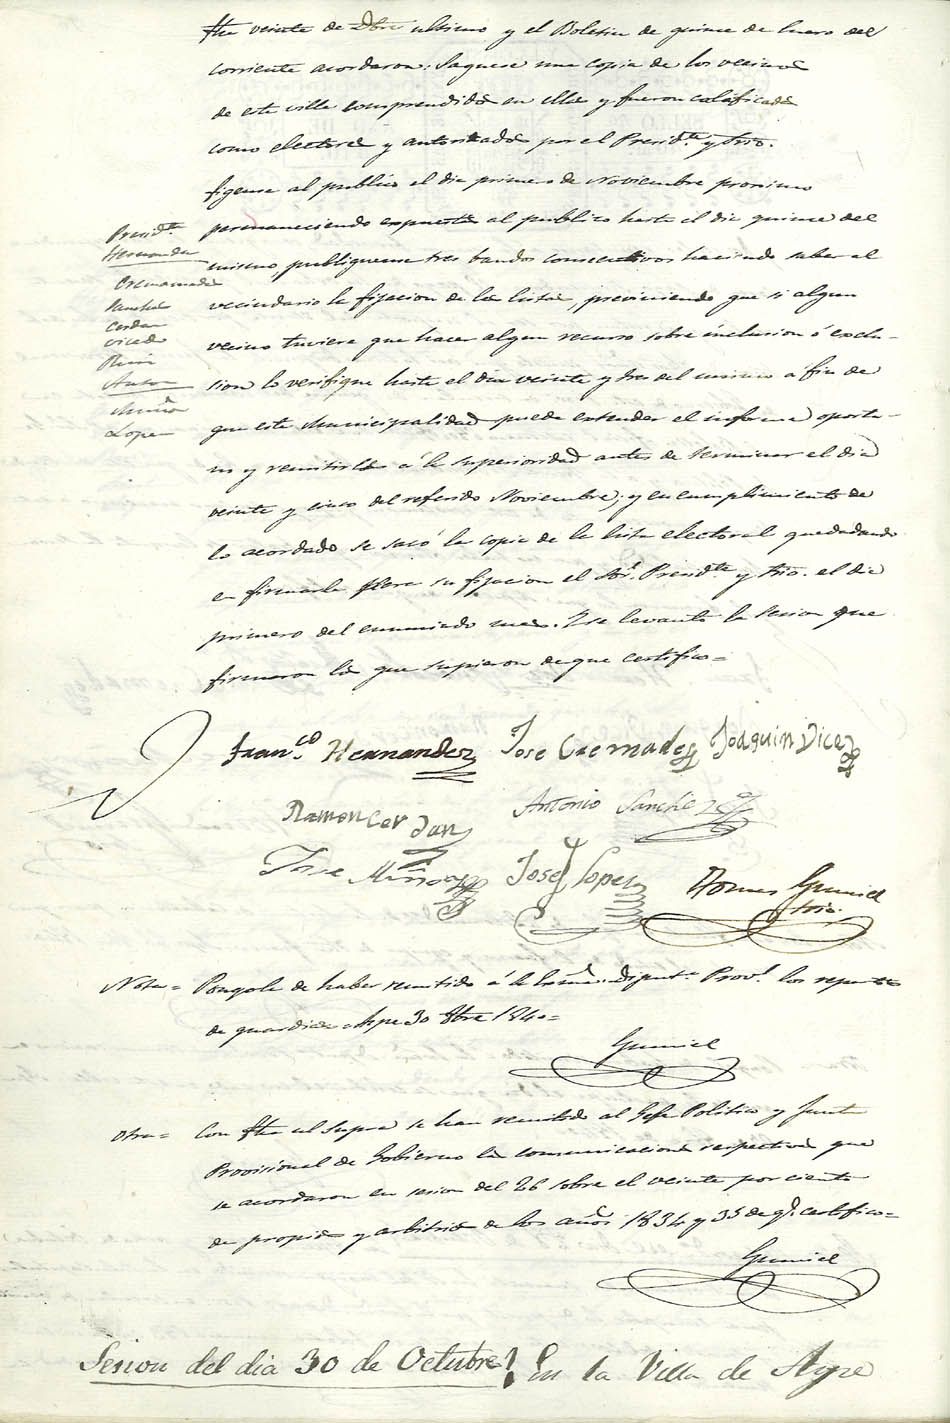 fha veinte de Dbre ultimo y el Boletin de quince de Enero del
corriente acordaron: Saquese una copia de los vecinos
de esta villa comprendidos en ellas y fueron calificados
como electores y autorizada por el Presid.te y Srio.
figese al publico el dia primero de Noviembre proximo
permaneciendo expuesta al publico hasta el dia quince del
mismo, publiquense tres bandos consecutivos haciendo saber al
vecindario la fijacion de las listas, previniendo que si algun
vecino tuviere que hacer algun recurso sobre inclusion ó exclu-
sion lo verifique hasta el dia veinte y tres del mismo a fin de
que esta Municipalidad pueda extender el informe oportu-
no y remitirlas á la superioridad antes de terminar el dia
veinte y cinco del referido Noviembre; y en cumplimiento de
lo acordado se sacó la copia de la lista electoral quedadando
en firmarla para su fijacion el Sr. Presid.te y Srio. el dia
primero del enunciado mes. Y se levantó la sesion que
firmaron los que supieron de que certifico=
Presid.te
Hernandez
Cremades
Sanchez
Cerdan
Vicedo
Anton
Muñoz
Lopez
Fran.co Hernandez Jose Cremades Joaquin Vicedo
Ramon Cerdan Antonio Sanchez
Jose Muñoz José Lopez Tomas Gumiel
Srio.
Nota= Pongola de haber remitido á la Exma. Diput.n Prov.l los repartos
de guardias Aspe 30 8bre 1840=
Gumiel
Otra= Con fha ut supra se han remitido al Gefe Politico y Junta
Provisional de Gobierno las comunicaciones respectivas que
se acordaron en sesion del 26 sobre el veinte por ciento
de propios y arbitrios de los años 1834 y 35 de q.e certifico=
Gumiel
Sesion del dia 30 de Octubre. En la Villa de Aspe